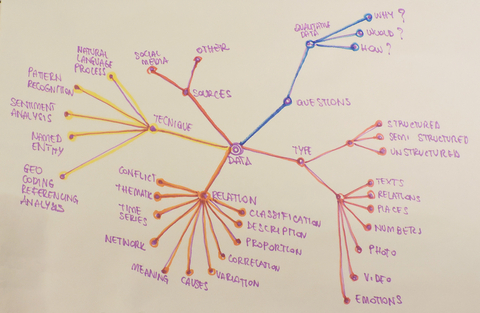 WHY?
WOULD?
HOW?
QUALITATIVE
DATA
QUESTIONS
SOCIAL
MEDIA
OTHER
SOURCES
NATURAL
LANGUAGE
PROCESS
PATTERN
RECOGNITION
SENTIMENT
ANALYSIS
NAMED
ENTITY
GEO
CODING
REFERENCING
ANALYSIS
TECNIQUE
DATA
TYPE
STRUCTURED
SEMI STRUCTURED
UNSTRUCTURED
TEXTS
RELATIONS
PLACES
NUMBERS
PHOTO
VIDEO
EMOTIONS
RELATION
CONFLICT
THEMATIC
TIME
SERIES
NETWORK
MEANING
CAUSES
VARIATION
CORRELATION
PROPORTION
DESCRIPTION
CLASSIFICATION